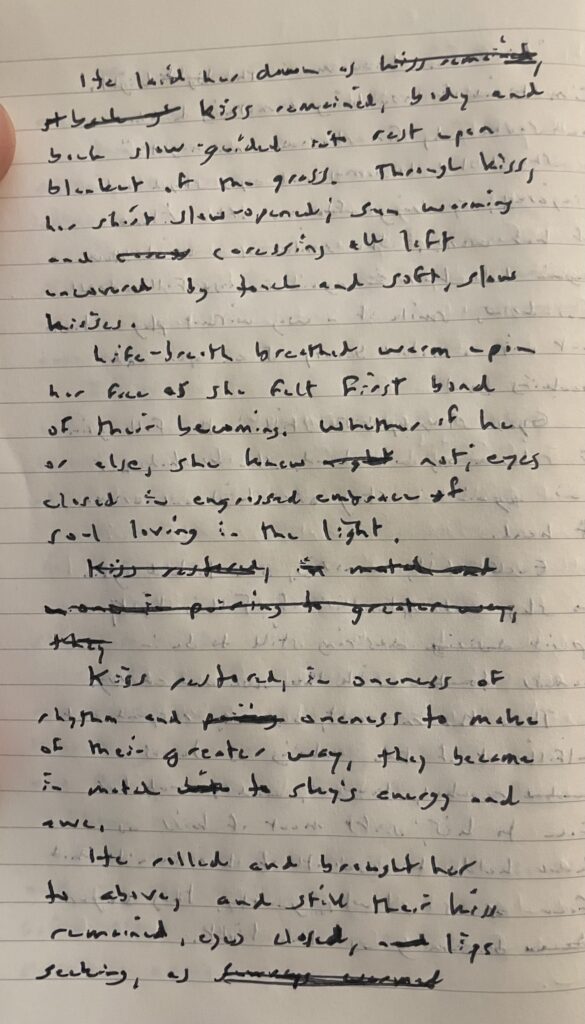 He laid her down as kiss remained,
kiss remained, body and
back slow-guided into rest upon
blanket of the grass. Through kiss,
her shirt slow-opened; sun warming
and caressing all left
uncovered by touch and soft, slow
kisses.
Life-breath breathed warm upon
her face as she felt first bond
of their becoming. Whether if he
or else, she knew not; eyes
closed in engrossed embrace of
soul loving in the light.
Kiss restored, in match and
in pairing to greater way,
they
Kiss restored, in oneness of
rhythm and pairing oneness to make
of their greater way, they became
in match to sky's energy and
awe.
He rolled and brought her
to above, and still their kiss
remained, eyes closed, and lips
seeking, as warmed